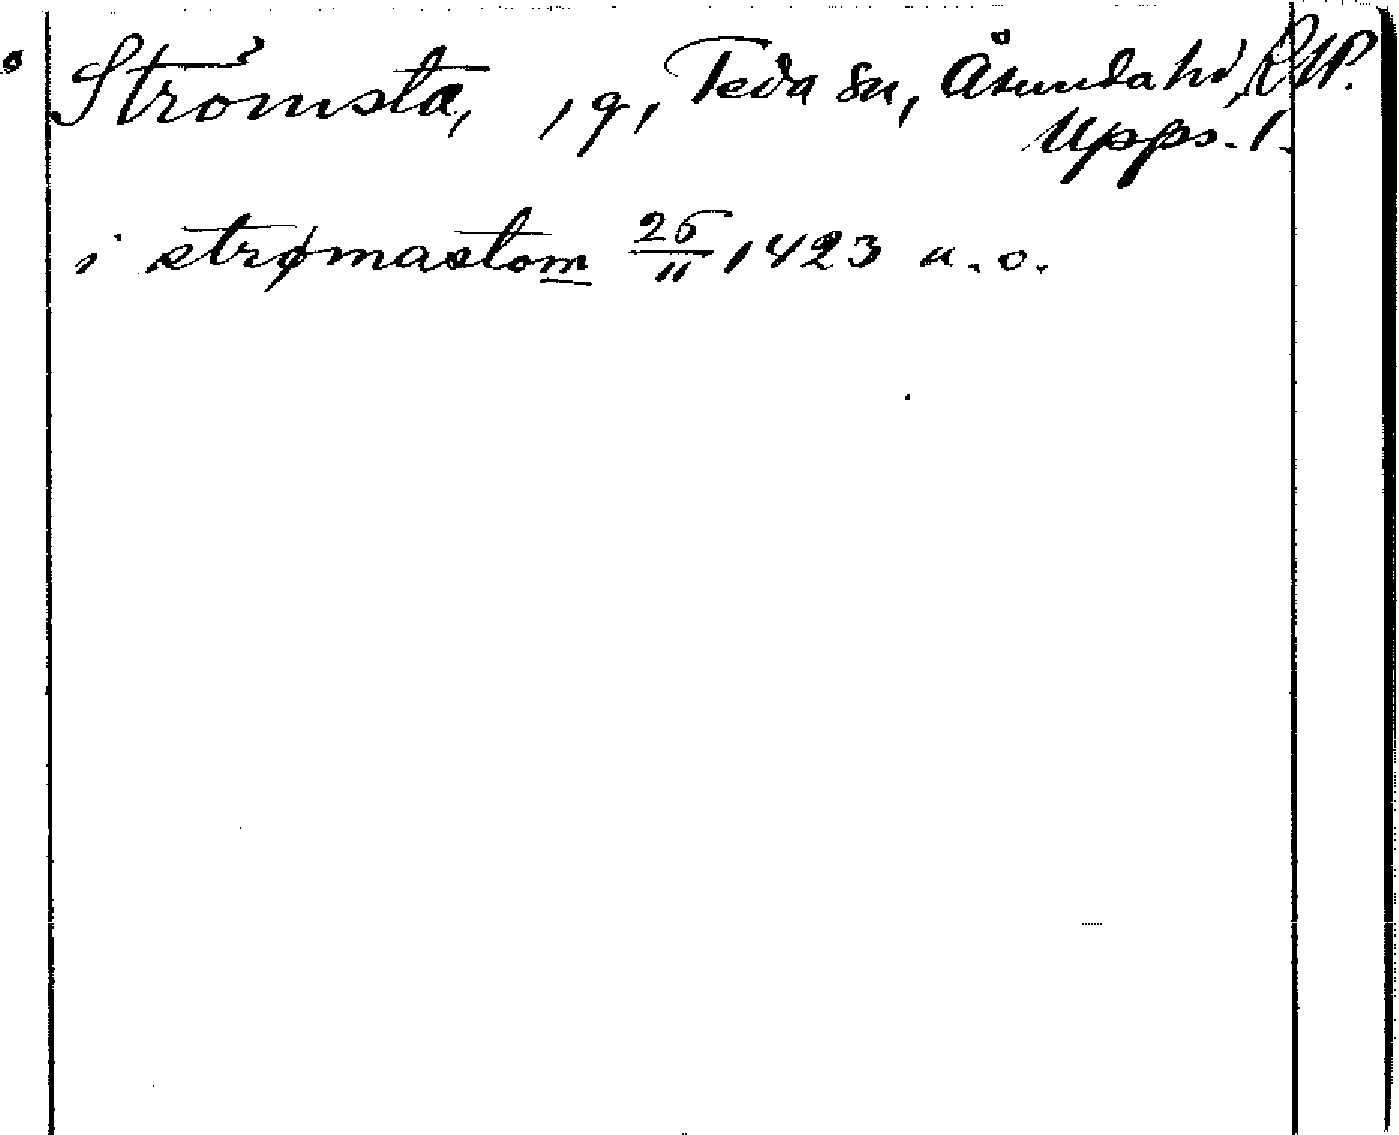 Strömsta, , g, Teda sn, Åsunda hd,
Upps. l.
i strømastom 26/11 1423 a.o.